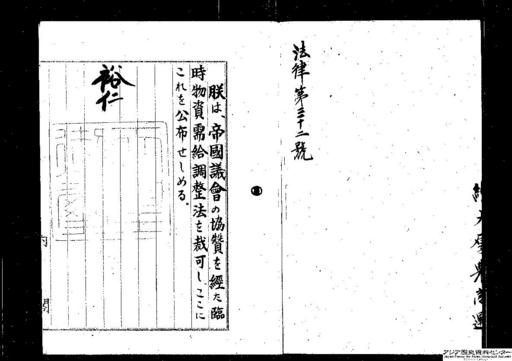 法律第三十二號
朕は、帝國議會の協贊を經た臨
時物資需給調整法を裁可し、ここに
これを公布せしめる。
裕仁
内閣
アジア歴史資料センター